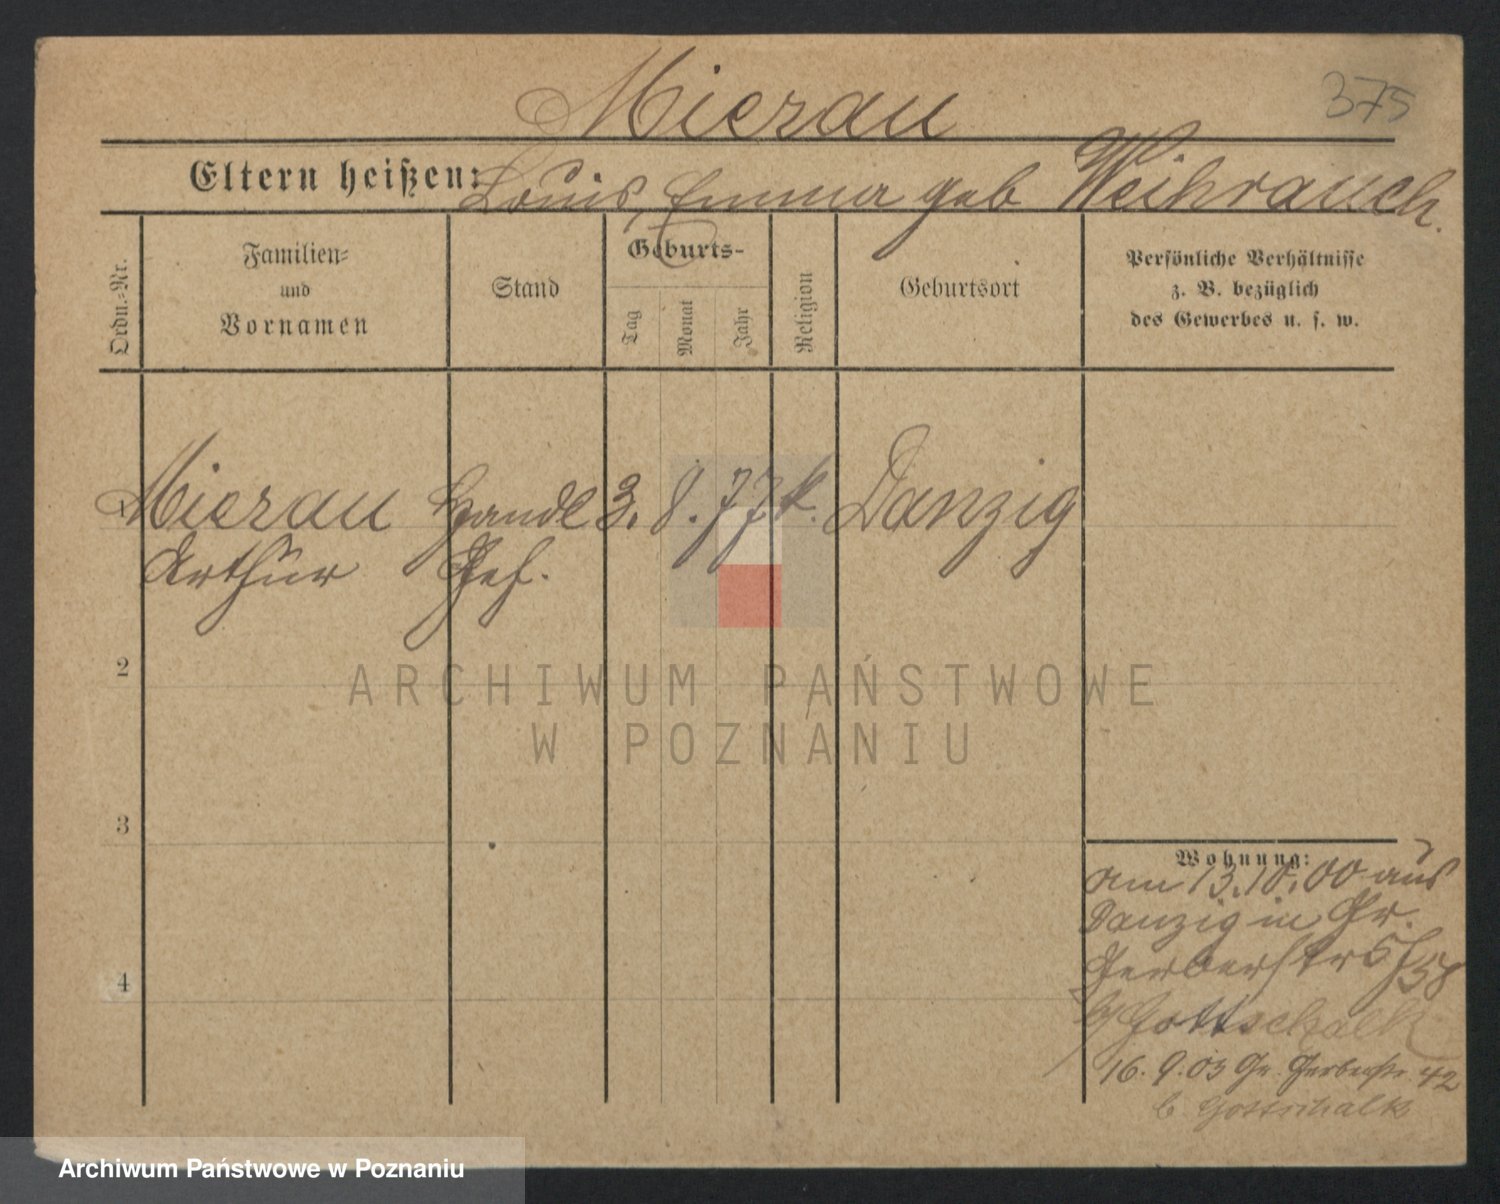 Mierau
375
Eltern heißen: Louis, Emma geb Weihrauch.
Ordn.=Nr.
Familien=
und
Vornamen
Stand
Geburts-
Tag
Monat
Jahr
Religion
Geburtsort
Persönliche Verhältnisse
z. B. bezüglich
des Gewerbes u. s. w.
1 Mierau Handl 3. 8. 77 k. Danzig
Arthur Geh.
2
ARCHIWUM PAŃSTWOWE
W POZNANIU
3
Wohnung:
am 13.10.00 aus
Danzig in Gr.
Gerberstr
b/ Gottschalk
16. 9. 03 Gr. Gerberstr. 42
b. Gottschalk
4
Archiwum Państwowe w Poznaniu